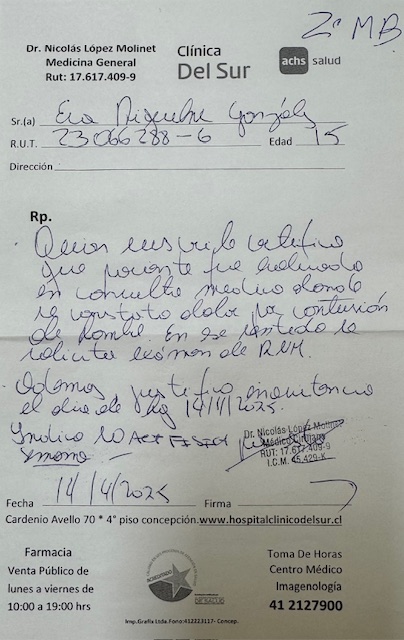 2º MB
Dr. Nicolás López Molinet
Medicina General
Rut: 17.617.409-9
Clínica
Del Sur
achs salud
Sr.(a) Eva González
R.U.T. 23066288-6 Edad 15
Dirección
Rp.
Quien suscribe certifica
que paciente fue evaluado
en consulta medica donde
se constata dolor por contusión
de hombro. En ese sentido se
solicita exámen de RNM.
Además justifico inasistencia
el dia de hoy 14/4/2025.
Indico NO ACT FISICA
Dr. Nicolás López Molinet
Médico Cirujano
RUT: 17.617.409-9
I.C.M. 45.429-K
Fecha 14/4/2025 Firma
Cardenio Avello 70 * 4° piso concepción.www.hospitalclinicodelsur.cl
Farmacia
Venta Público de
lunes a viernes de
10:00 a 19:00 hrs
ACREDITADO
Toma De Horas
Centro Médico
Imagenología
41 2127900
Imp.Grafix Ltda.Fono:412223117- Concep.